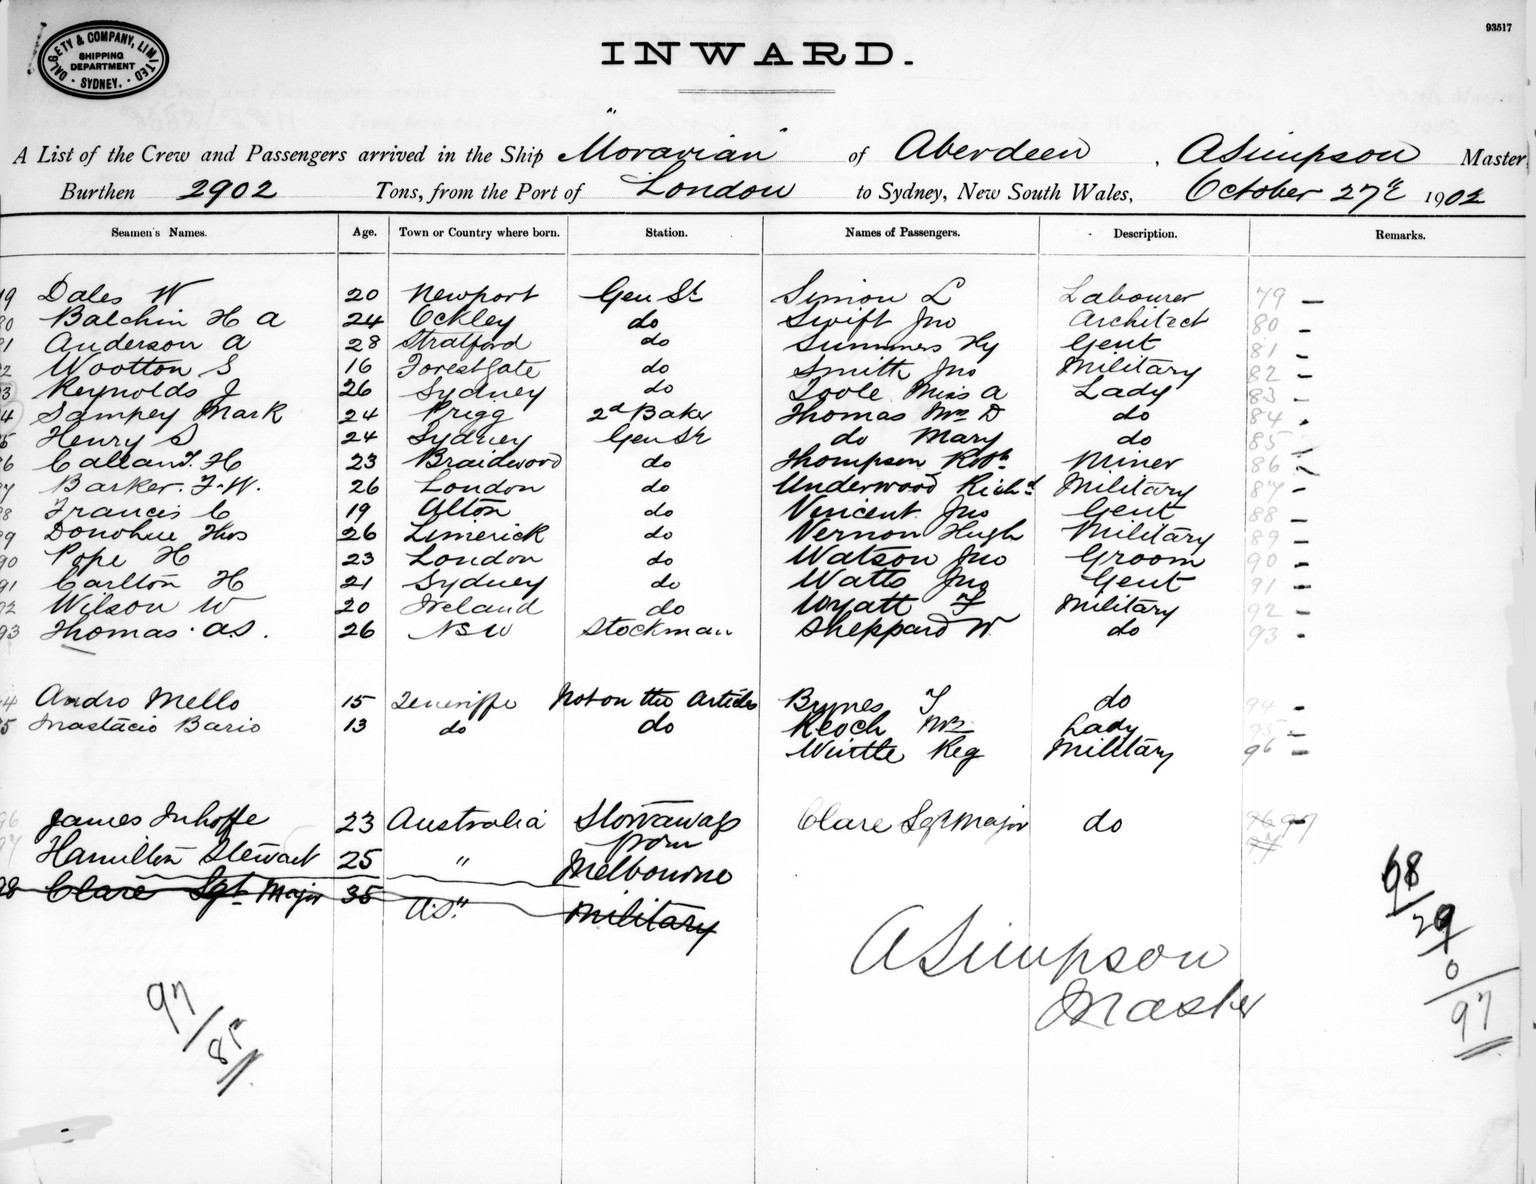 DALGETY & COMPANY, LIMITED
SHIPPING
DEPARTMENT
SYDNEY.
93517
INWARD.
A List of the Crew and Passengers arrived in the Ship "Moravian" of Aberdeen, A Simpson Master,
Burthen 2902 Tons, from the Port of London to Sydney, New South Wales, October 27th 1902
Seamen's Names. Age. Town or Country where born. Station. Names of Passengers. Description. Remarks.
Dales W 20 Newport Gen St Simon L Labourer 79 –
Balchin H A 24 Ockley do Swift Jno Architect 80 –
Anderson A 28 Stratford do Summers Hy Gent 81 –
Wootton S 16 Forest Gate do Smith Jno Military 82 –
Reynolds J 26 Sydney do Toole Miss A Lady 83 –
Sampey Mark 24 Brigg 2nd Baker Thomas Mrs D do 84
Henry S 24 Sydney Gen St do Mary do 85
Callan T. H 23 Braidwood do Thompson Robt Miner 86
Barker. F. W. 26 London do Underwood Richd Military 87 –
Francis C 19 Alton do Vincent Jno Gent 88 –
Donohue Thos 26 Limerick do Vernon Hugh Military 89 –
Pope H 23 London do Watson Jno Groom 90 –
Carlton H 21 Sydney do Watts Jno Gent 91 –
Wilson W 20 Ireland do Wyatt F Military 92 –
93 Thomas. A S. 26 NSW Stockman Sheppard W do 93 -
Andro Mello 15 Teneriffe Not on the Articles Byrnes T do 94 -
Anastacio Bario 13 do do Keoch Mrs Lady 95 –
Wintle Reg Military 96 –
96 James Inhoffe 23 Australia Stowaways Clare Sgt Major do 96 97
from
97 Hamilton Stewart 25 " Melbourne 97
98 Clare Sgt Major 35 A.S." Military
A Simpson
Master
97/85
68/
29
0/
97